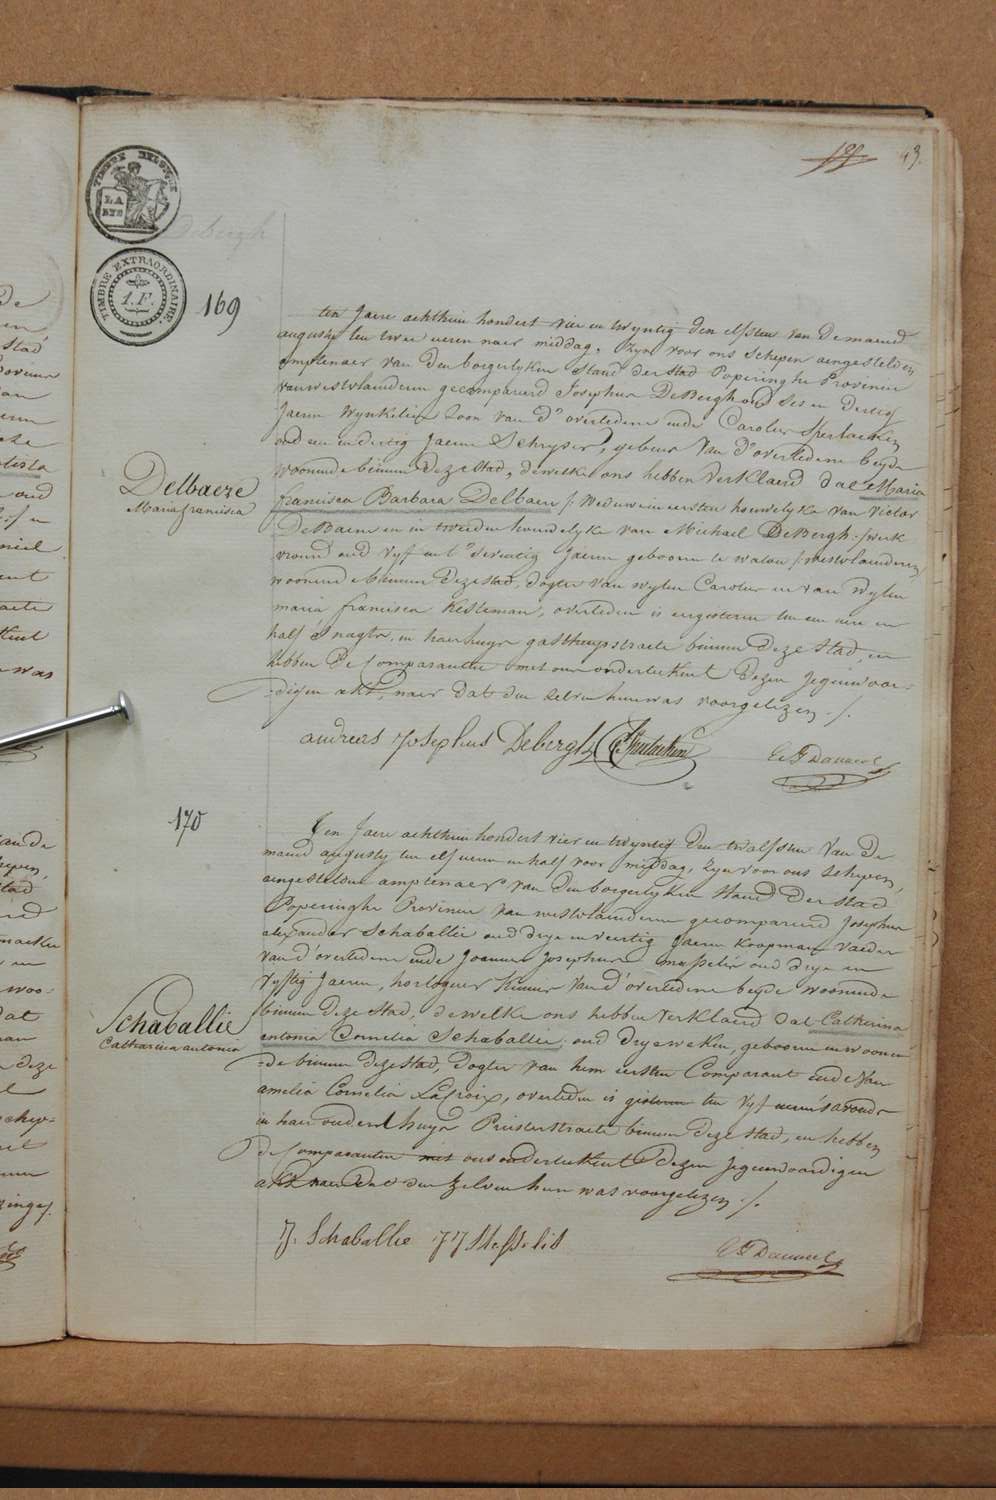 43.
TIMBRE BELGIQUE
LA
TIMBRE EXTRAORDINAIRE.
1.F.
DeBergh
169
ten Jaere achthien hondert vier en twyntig den elfsten van de maend
augusty ten twee ueren naer middag, zyn voor ons schepen aengestelden
amptenaer van den borgerlyken stand der stad Poperinghe Provincie
van westvlaenderen gecompareerd Josephus DeBergh oud ses en dertig
Jaeren Wynkelier zoon van d'overledene ende Carolus Sperlaeken
oud een en dertig Jaeren Schryver, gebeur van d'overledene beyde
woonende binnen deze stad, dewelke ons hebben verklaerd dat Maria
francisca Barbara Delbaere /: Weduwe in eersten houwelyke van Victor
DeBaene en in tweeden houwelyke van Michael DeBergh :/ werk
vrouw oud vyf en t'seventig Jaeren geboren te watou /: westvlaenderen
woonende binnen deze stad, dogter van wylen Carolus en van wylen
maria francisca Kesteman, overleden is eergisteren ten een uere en
half s'nagts, in haer huys gasthuysstraete binnen deze stad, en
hebben de Comparanten met ons onderteekent dezen jegenwoor-
-digen akt, naer dat den zelven hun was voorgelezen ./.
Delbaeze
Maria francisca
andreas Josephus Debergh CSperlaeken
170
Ten Jaere achthien hondert vier en twyntig den twalfsten van de
maend augusty ten elf ueren en half voor middag, zyn voor ons schepen,
aengestelden amptenaer van den borgerlyken stand der stad
Poperinghe Provincie van westvlaenderen gecompareerd Josephus
alexander Schaballie oud drye en veertig Jaeren koopman vaeder
van d'overledene ende Joannes Josephus musselis oud drye en
vyftig Jaeren, horlogier kennis van d'overledene beyde woonende
binnen deze stad, dewelke ons hebben verklaerd dat Catherina
antonia Cornelia Schaballie, oud drye weken, geboren en woonen-
-de binnen deze stad, dogter van hem eersten Comparant ende van
amelia Cornelia LaCroix, overleden is gisteren ten vyf ueren s'avonds
in haer ouders huys Priesterstraete binnen deze stad, en hebben
de Comparanten met ons onderteekent dezen jegenwoordigen
akt naer dat den zelven hun was voorgelezen ./.
Schaballie
Catharina antonia
J. Schaballie JJ Musselis